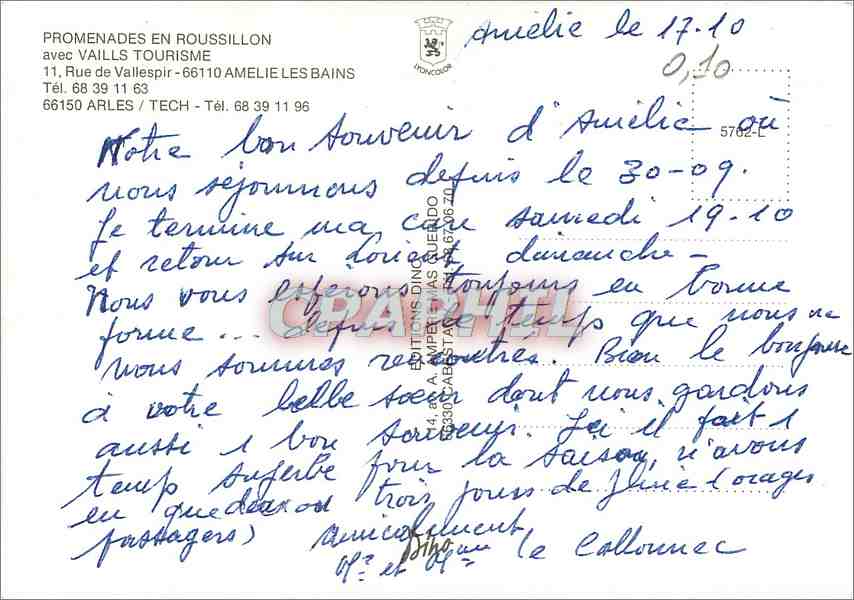 PROMENADES EN ROUSSILLON
avec VAILLS TOURISME
11, Rue de Vallespir - 66110 AMELIE LES BAINS
Tél. 68 39 11 63
66150 ARLES / TECH - Tél. 68 39 11 96
LYONCOLOR
Amélie le 17.10
0,10
5762-L
Notre bon souvenir d'Amélie où
nous séjournons depuis le 30-09.
Je termine ma cure samedi 19-10
et retour sur Lorient dimanche -
Nous vous espérons toujours en bonne
forme... depuis le temps que nous ne
nous sommes rencontrés. Bien le bonjour
à votre belle soeur dont nous gardons
aussi 1 bon souvenir. Ici il fait 1
temps superbe pour la saison, n'avons
eu que deux ou trois jours de pluie (orages
passagers) amicalement
Mr et Mme Le Callonnec
EDITIONS DINO
14, av. A. AMPERE - MAS GUERIDO
66330 CABESTANY
Dino
CPARHFL